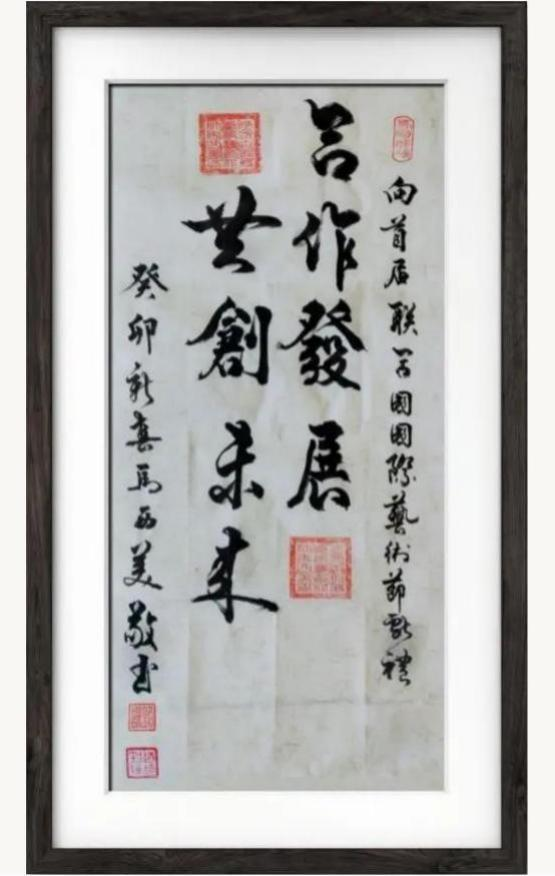 向首届联合國國際藝術節獻禮
合作發展
共創未来
癸卯新馬西美敬书